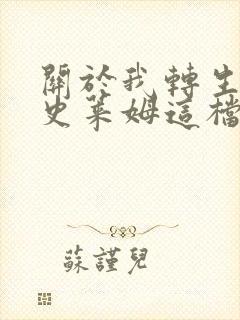 關於我轉生
史萊姆這檔
蘇謹兒